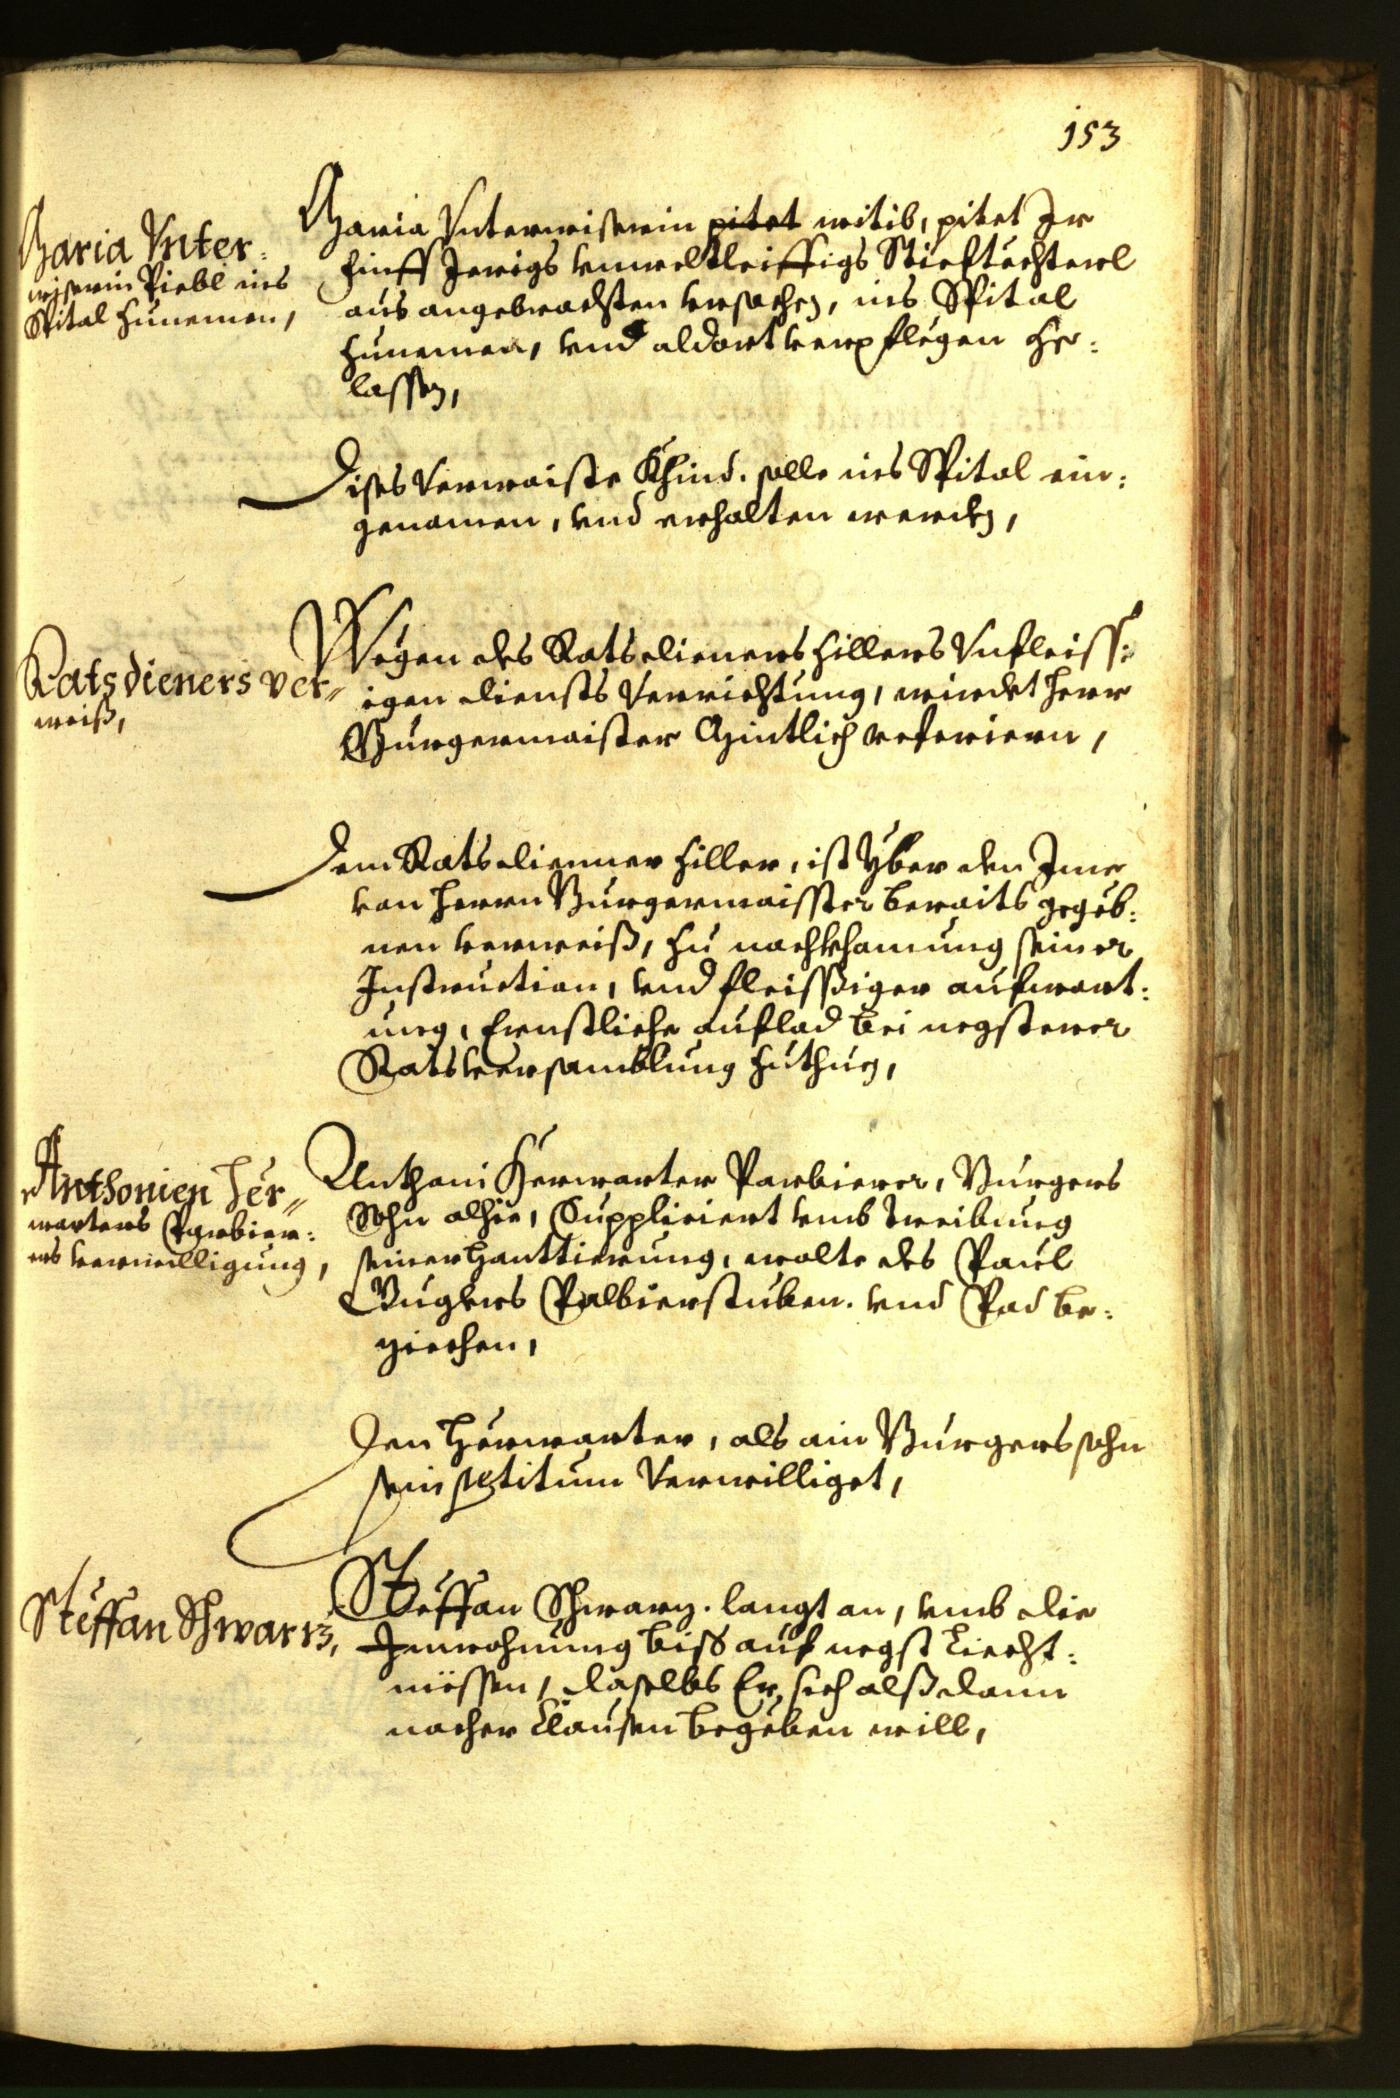 153
Maria Vnter-
wiserin Piebl ins
Spital zunemen,
Maria Vnterwiserin pitet witib, pitet Ir
finff Jerigs vnweltleiffigs Stieftechterl
aus angebrachten vrsachen, ins Spital
zunemen, vnd aldort verpflegen zu-
lassen,
Dises Verwaiste Khind. solle ins Spital ein-
genomen, vnd erhalten werden,
Ratsdieners ver-
weiß,
Wegen des Ratsdieners Hillers Vnfleiss-
igen diensts Verrichtung, wirdet Herr
Burgermaister Mintlich referiern,
Dem Ratsdienner Hiller, ist yber den Ime
von Herrn Burgermaisster beraits gegeb-
nen verweiß, zu nachkhomung seiner
Instruction, vnd fleissiger aufwart-
ung, Ernstliche auflad bei negsterer
Ratsversamblung zuthun,
Anthonien Her-
warters Parbier-
ers verwilligung,
Anthoni Herwarter Parbierer, Burgers
Sohn alhie, Suppliciert vmb treibung
seiner Hanttierung, wolte des Paul
Pugkers Palbierstuben. vnd Pad be-
ziechen,
Den Herwarter, als ain Burgerssohn
sein petitum Verwilliget,
Steffan Schwarz,
Steffan Schwarz. langt an, vmb die
Inwohnung biss auf negst Liecht-
messen, daselbs Er, sich alßdann
nacher Clausen begeben will,